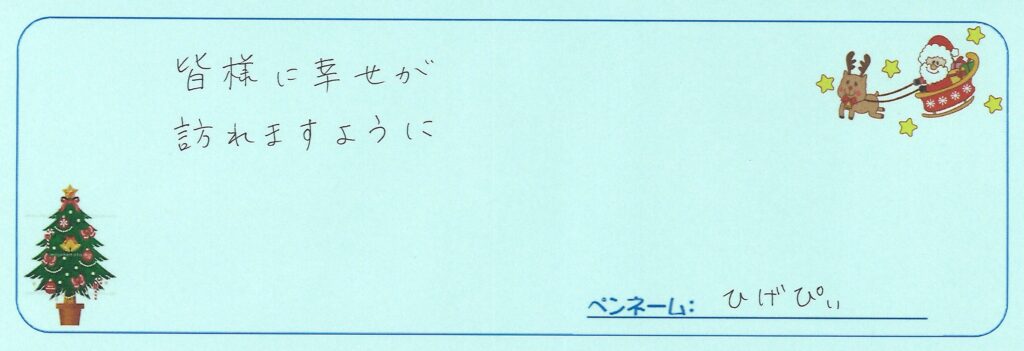 皆様に幸せが
訪れますように
ペンネーム: ひげぴぃ